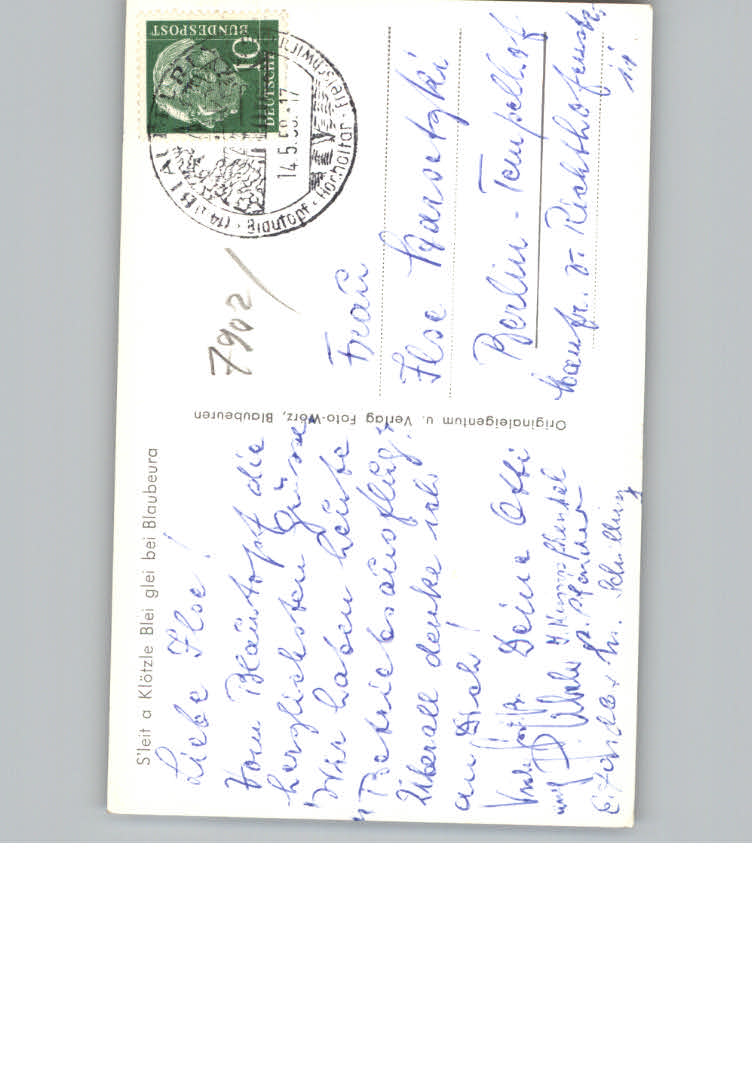 S'leit a Klötzle Blei glei bei Blaubeura
Liebe Ilse!
Vom Blautopf die
herzlichsten Grüsse
Wir haben heute
"Betriebsausflug".
Überall denke ich
an Dich!
Deine Otti
M. Schilling
Originaleigentum u. Verlag Foto-Wörz, Blaubeuren
7902
DEUTSCHE
BUNDESPOST
10
14.5.58.-17
(14b) Blautopf · Hochaltar ·
Frau
Ilse
Berlin - Tempelhof
Manfr. v. Richthofenstr.